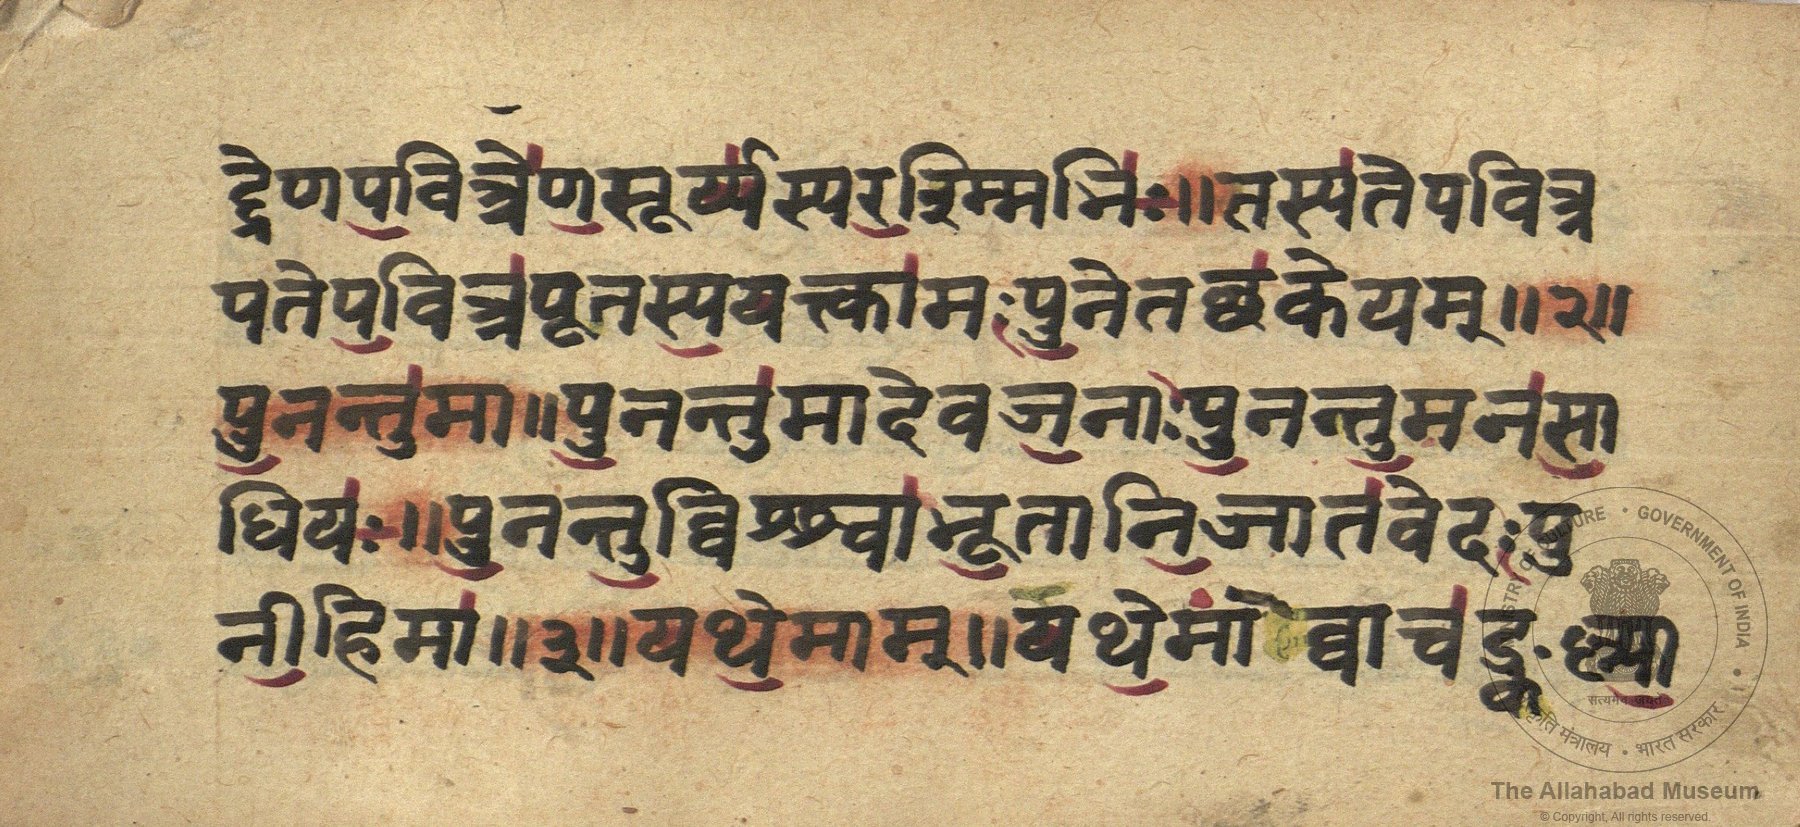 द्द्रेणपवित्रेणसूर्य्यस्यरश्म्मिभिः॥तस्यतेपवित्र
पतेपवित्रपूतस्ययत्कामःपुनेतच्छकेयम्॥२॥
पुनन्तुमा॥पुनन्तुमादेवजनाःपुनन्तुमनसा
धियः॥पुनन्तुव्विश्श्वाभूतानिजातवेदःपु
नीहिमा॥३॥यथेमाम्॥यथेमां व्वाचङ्क
The Allahabad Museum
© Copyright, All rights reserved.
MINISTRY OF CULTURE • GOVERNMENT OF INDIA
सत्यमेव जयते
संस्कृति मंत्रालय • भारत सरकार